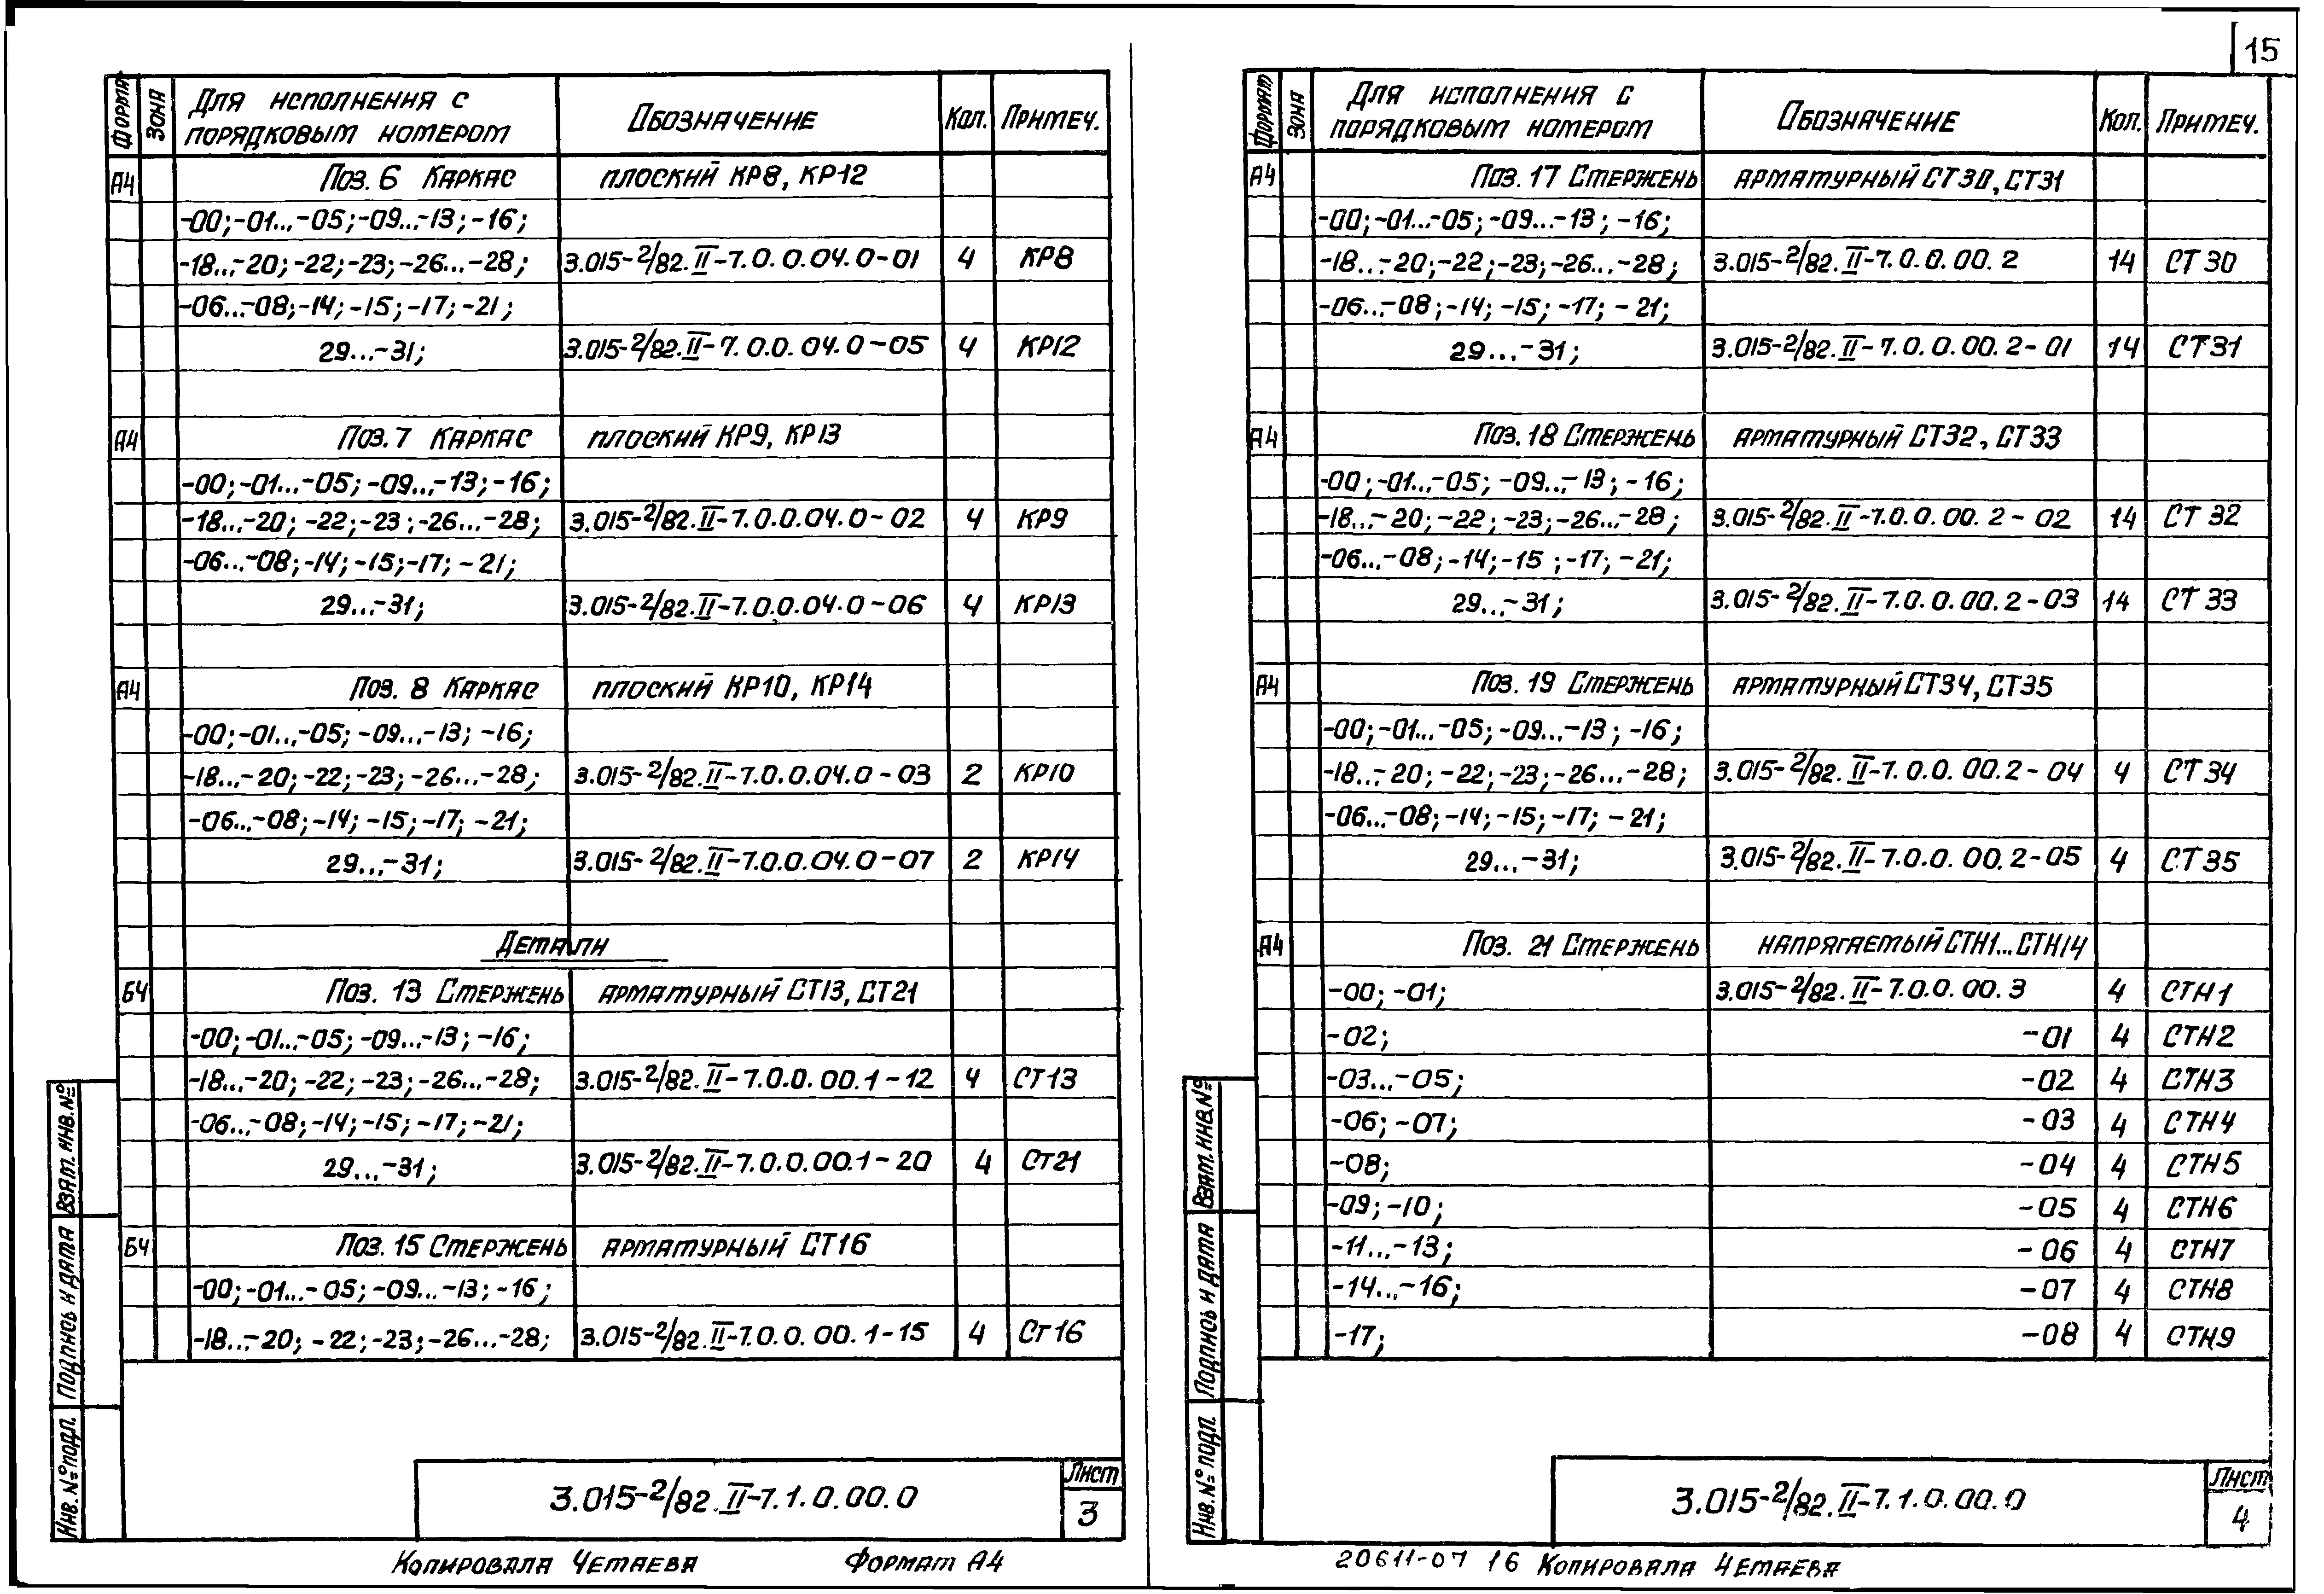 15
Формат Зона Для исполнения с порядковым номером Обозначение Кол. Примеч.
А4 Поз. 6 Каркас плоский КР8, КР12
-00; -01...-05; -09...-13; -16;
-18...-20; -22; -23; -26...-28; 3.015-2/82.II-7.0.0.04.0-01 4 КР8
-06...-08; -14; -15; -17; -21;
29...-31; 3.015-2/82.II-7.0.0.04.0-05 4 КР12
А4 Поз. 7 Каркас плоский КР9, КР13
-00; -01...-05; -09...-13; -16;
-18...-20; -22; -23; -26...-28; 3.015-2/82.II-7.0.0.04.0-02 4 КР9
-06...-08; -14; -15; -17; -21;
29...-31; 3.015-2/82.II-7.0.0.04.0-06 4 КР13
А4 Поз. 8 Каркас плоский КР10, КР14
-00; -01...-05; -09...-13; -16;
-18...-20; -22; -23; -26...-28; 3.015-2/82.II-7.0.0.04.0-03 2 КР10
-06...-08; -14; -15; -17; -21;
29...-31; 3.015-2/82.II-7.0.0.04.0-07 2 КР14
Детали
БЧ Поз. 13 Стержень арматурный СТ13, СТ21
-00; -01...-05; -09...-13; -16;
-18...-20; -22; -23; -26...-28; 3.015-2/82.II-7.0.0.00.1-12 4 СТ13
-06...-08; -14; -15; -17; -21;
29...-31; 3.015-2/82.II-7.0.0.00.1-20 4 Ст21
БЧ Поз. 15 Стержень арматурный СТ16
-00; -01...-05; -09...-13; -16;
-18...-20; -22; -23; -26...-28; 3.015-2/82.II-7.0.0.00.1-15 4 Ст16
Инв. № подл. Подпись и дата Взам. инв. №
3.015-2/82.II-7.1.0.00.0
Лист
3
Копировала Четаева Формат А4
Формат Зона Для исполнения с порядковым номером Обозначение Кол. Примеч.
А4 Поз. 17 Стержень арматурный СТ30, СТ31
-00; -01...-05; -09...-13; -16;
-18...-20; -22; -23; -26...-28; 3.015-2/82.II-7.0.0.00.2 14 СТ30
-06...-08; -14; -15; -17; -21;
29...-31; 3.015-2/82.II-7.0.0.00.2-01 14 СТ31
А4 Поз. 18 Стержень арматурный СТ32, СТ33
-00; -01...-05; -09...-13; -16;
-18...-20; -22; -23; -26...-28; 3.015-2/82.II-7.0.0.00.2-02 14 СТ32
-06...-08; -14; -15; -17; -21;
29...-31; 3.015-2/82.II-7.0.0.00.2-03 14 СТ33
А4 Поз. 19 Стержень арматурный СТ34, СТ35
-00; -01...-05; -09...-13; -16;
-18...-20; -22; -23; -26...-28; 3.015-2/82.II-7.0.0.00.2-04 4 СТ34
-06...-08; -14; -15; -17; -21;
29...-31; 3.015-2/82.II-7.0.0.00.2-05 4 СТ35
А4 Поз. 21 Стержень напрягаемый СТН1...СТН14
-00; -01; 3.015-2/82.II-7.0.0.00.3 4 СТН1
-02; -01 4 СТН2
-03...-05; -02 4 СТН3
-06; -07; -03 4 СТН4
-08; -04 4 СТН5
-09; -10; -05 4 СТН6
-11...-13; -06 4 СТН7
-14...-16; -07 4 СТН8
-17; -08 4 СТН9
Инв. № подл. Подпись и дата Взам. инв. №
3.015-2/82.II-7.1.0.00.0
Лист
4
20611-07 16 Копировала Четаева